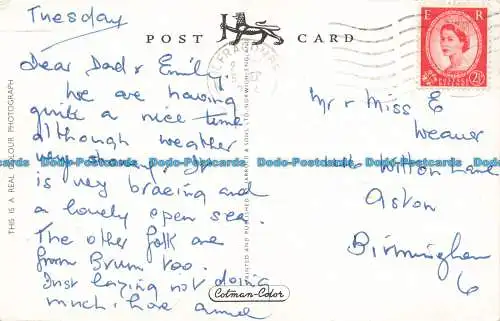 Tuesday
POST CARD
Dear Dad & Emily.
We are having
quite a nice time
although weather
very
is very bracing and
a lovely open sea.
The other folk are
from Brum too.
Just laying not doing
much. Love
Mr & Miss E
Weaver
Wilton Lane
Aston
Birmingham
6
E R
POSTAGE REVENUE
2½
THIS IS A REAL COLOUR PHOTOGRAPH
PRINTED AND PUBLISHED BY JARROLD & SONS LTD. NORWICH, ENGLAND
Cotman-Color
Dodo-Postcards Dodo-Postcards Dodo-Postcards Dodo-Postcards Dodo-Postcards Dodo-Postcards